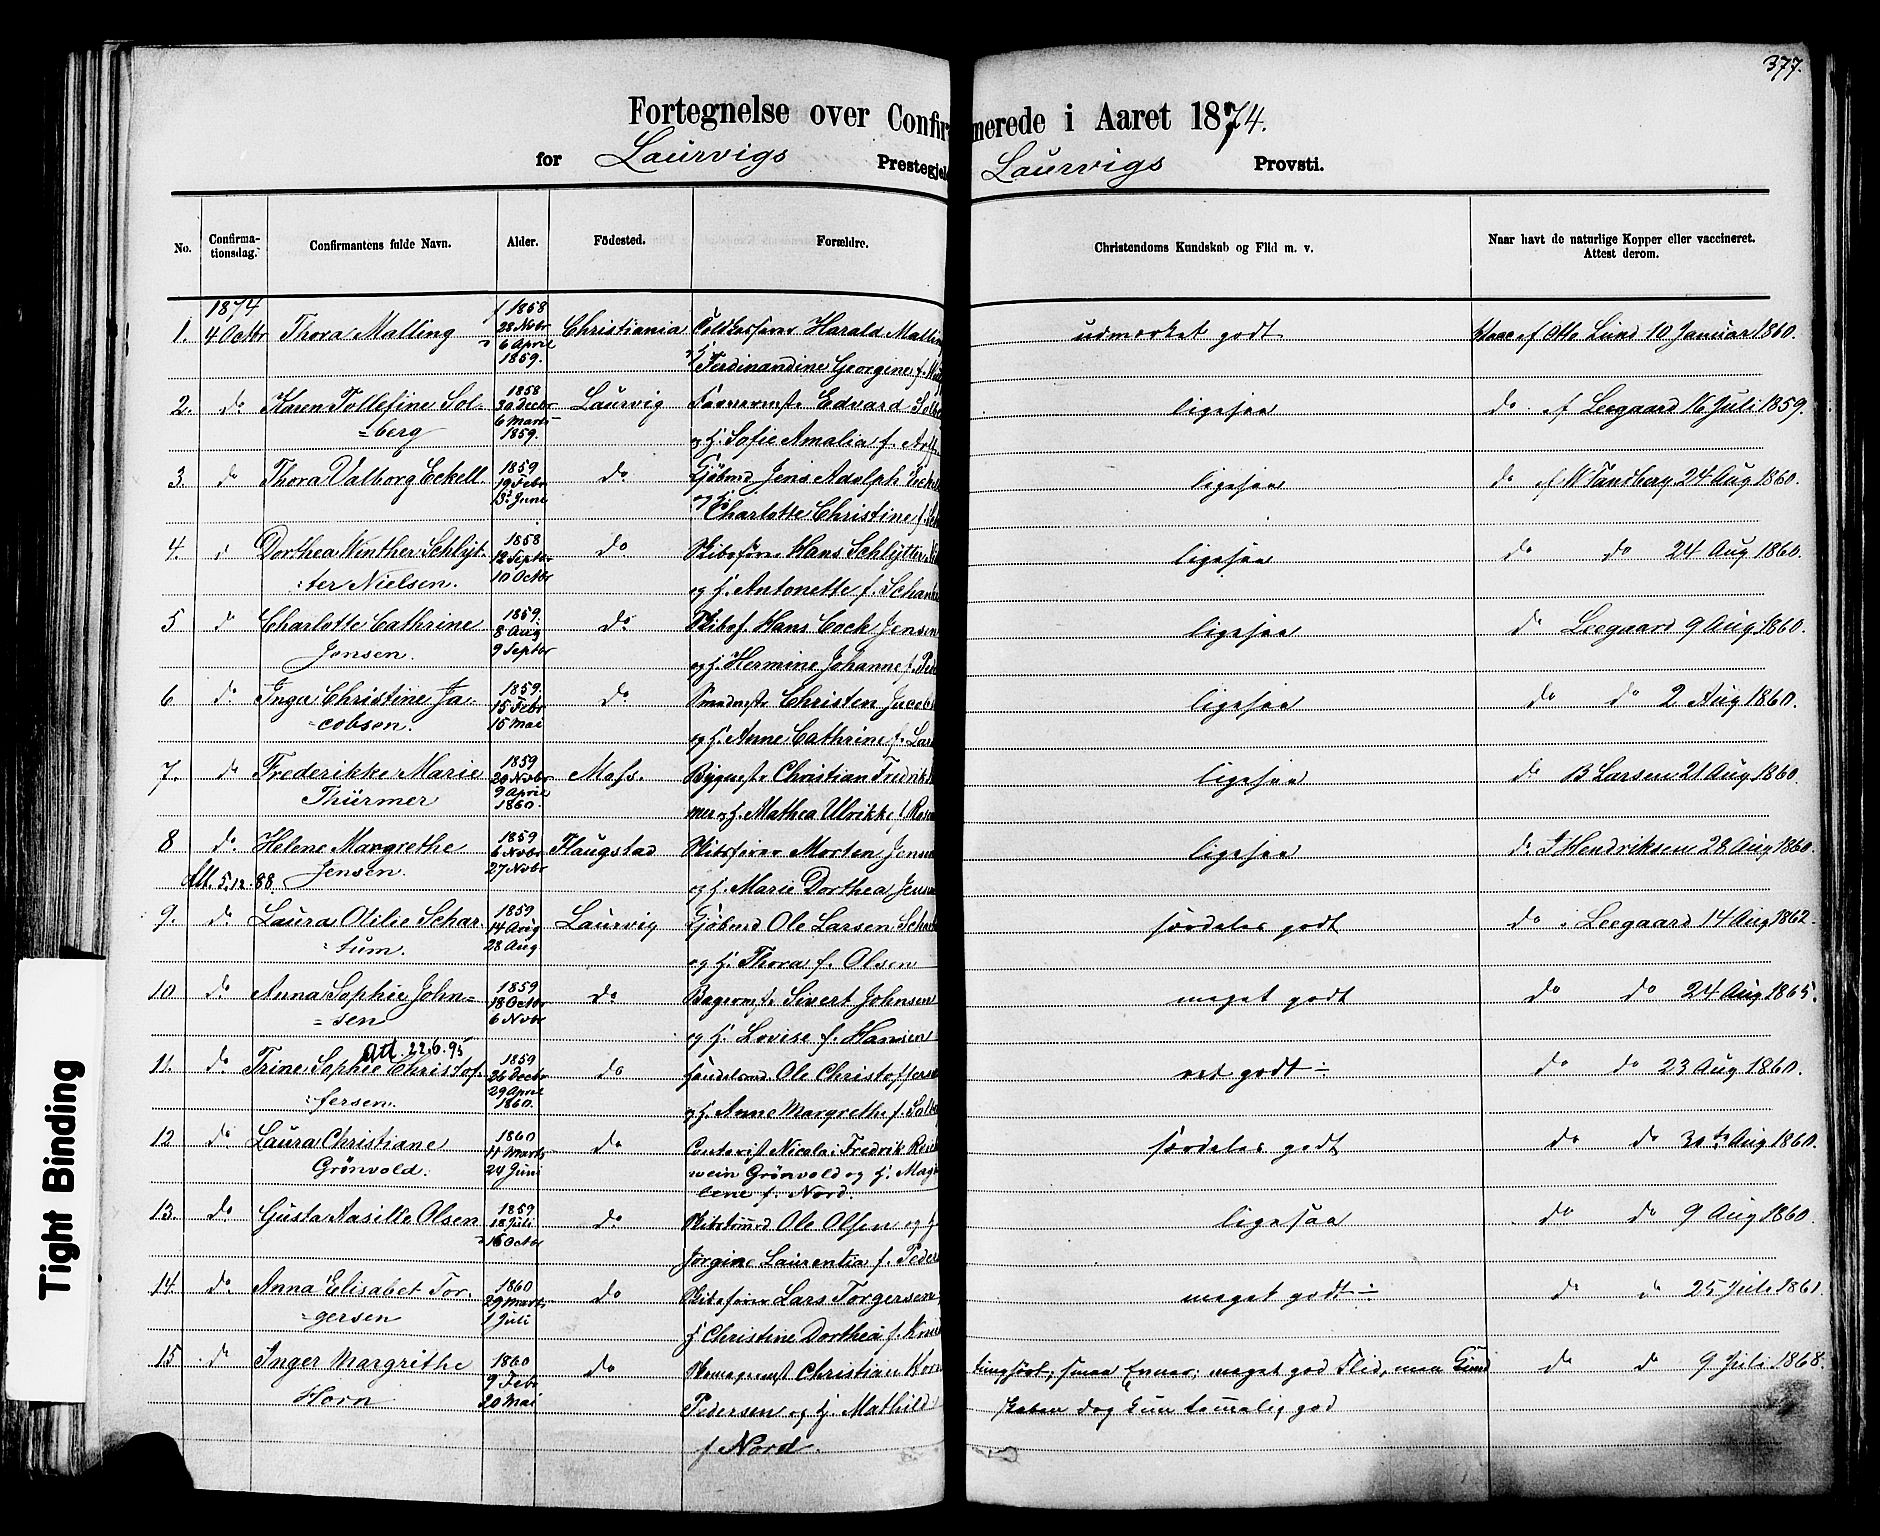 377.
Fortegnelse over Confirmerede i Aaret 1874.
for Laurvigs Prestegjeld Laurvigs Provsti.
No. Confirmationsdag. Confirmantens fulde Navn. Alder. Födested. Forældre. Christendoms Kundskab og Flid m. v. Naar havt de naturlige Kopper eller vaccineret. Attest derom.
1874
1. 4 Octbr Thora Malling f 1858 28 Novbr 6 April 1859. Christiania Harald Malling udmærket godt Otto Lund 10 Januar 1860.
Ferdinandine Georgine f.
2. do Karen Tollefine Sol- 1858 30 Decbr 6 Marts 1859. Laurvig Edvard ligesaa do af Leegaard 16 Juli 1859.
berg og H. Sofie Amalia f.
3. do Thora Valborg Eckell 1859 19 Febr 13 Juni do Gjöbmd Jens Adolph ligesaa do af M Tandberg 24 Aug 1860.
og H. Charlotte Christine f.
4. Dorthea Winther Schlÿt- 1858 12 Septbr 10 Octbr do Skibsförer Hans Schlÿtter ligesaa do do 24 Aug 1860.
ter Nielsen. og H. Antonette f.
5 do Charlotte Cathrine 1859. 8 Aug 9 Septbr do Skibsf. Hans Cock Jensen ligesaa do Leegaard 9 Aug 1860.
Jensen. og H. Hermine Johanne f.
6 do Inger Christine Ja- 1859. 15 Febr 15 Mai do Smedmstr Christen ligesaa do do 2 Aug 1860.
cobsen. og H. Anne Cathrine f.
7. do Frederikke Marie 1859 20 Novbr 9 April 1860. Moss. Bÿgmstr Christian Fredrik ligesaa do B Larsen 21 Aug 1860.
Thürmer mer og H. Mathea Ulrikke f.
8 do Helene Margrethe 1859 6 Novbr 27 Novbr Haugstad Skibsförer Morten ligesaa do J Hendriksen 28 Aug 1860.
Att. 5.12.88 Jensen. og H. Marie Dorthea
9. do Laura Otilie Schar- 1859 14 Aug 28 Aug Laurvig Gjöbmd Ole Larsen særdeles godt do Leegaard 14 Aug 1862.
tum. og H. Thora f. Olsen
10 do Anna Sophie John- 1859 18 Octbr 6 Novbr do Bagermstr Sivert Johnsen meget godt do do 24 Aug 1865.
sen og H. Lovise f. Hansen
Att. 22.6.95
11. do Trine Sophie Christof- 1859 26 Decbr 29 April 1860. do Handelsmd Ole ret godt ÷ do do 23 Aug 1860.
fersen. og H. Anne Margrethe f.
12 do Laura Christiane 1860 11 Marts 24 Juni do Contorist Nicolai Fredrik særdeles godt do do 30te Aug 1860.
Grönvold. wein Grönvold og H.
lene f. Nord.
13. do Gusta Aasille Olsen 1859 18 Juli 16 Octbr do Ole Olsen og H ligesaa do do 9 Aug 1860.
Jörgine Laurentia f.
14. do Anna Elisabet Tor- 1860 29 Marts 1 Juli do Skibsförer Lars Torgersen meget godt ÷ do do 25 Juli 1861.
gersen H Christine Dorthea f.
15 do Inger Margrethe 1860 9 Febr 20 Mai do Christian smaa Evner; meget god Flid, men do do 9 Juli 1868.
Horn Pedersen og H. Mathilde dog kun temmelig god
f Nord.
Tight Binding